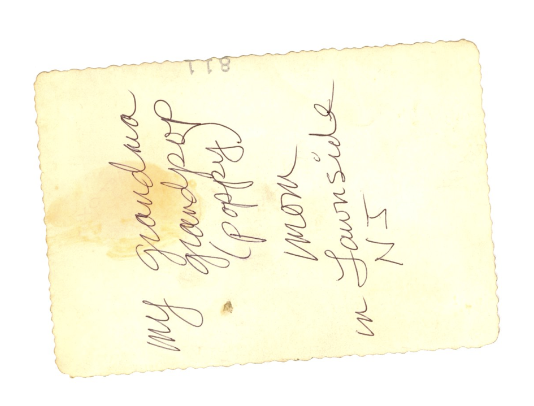 my grandma
grandpop
(poppy)
mom
in Lawnside
NJ
118